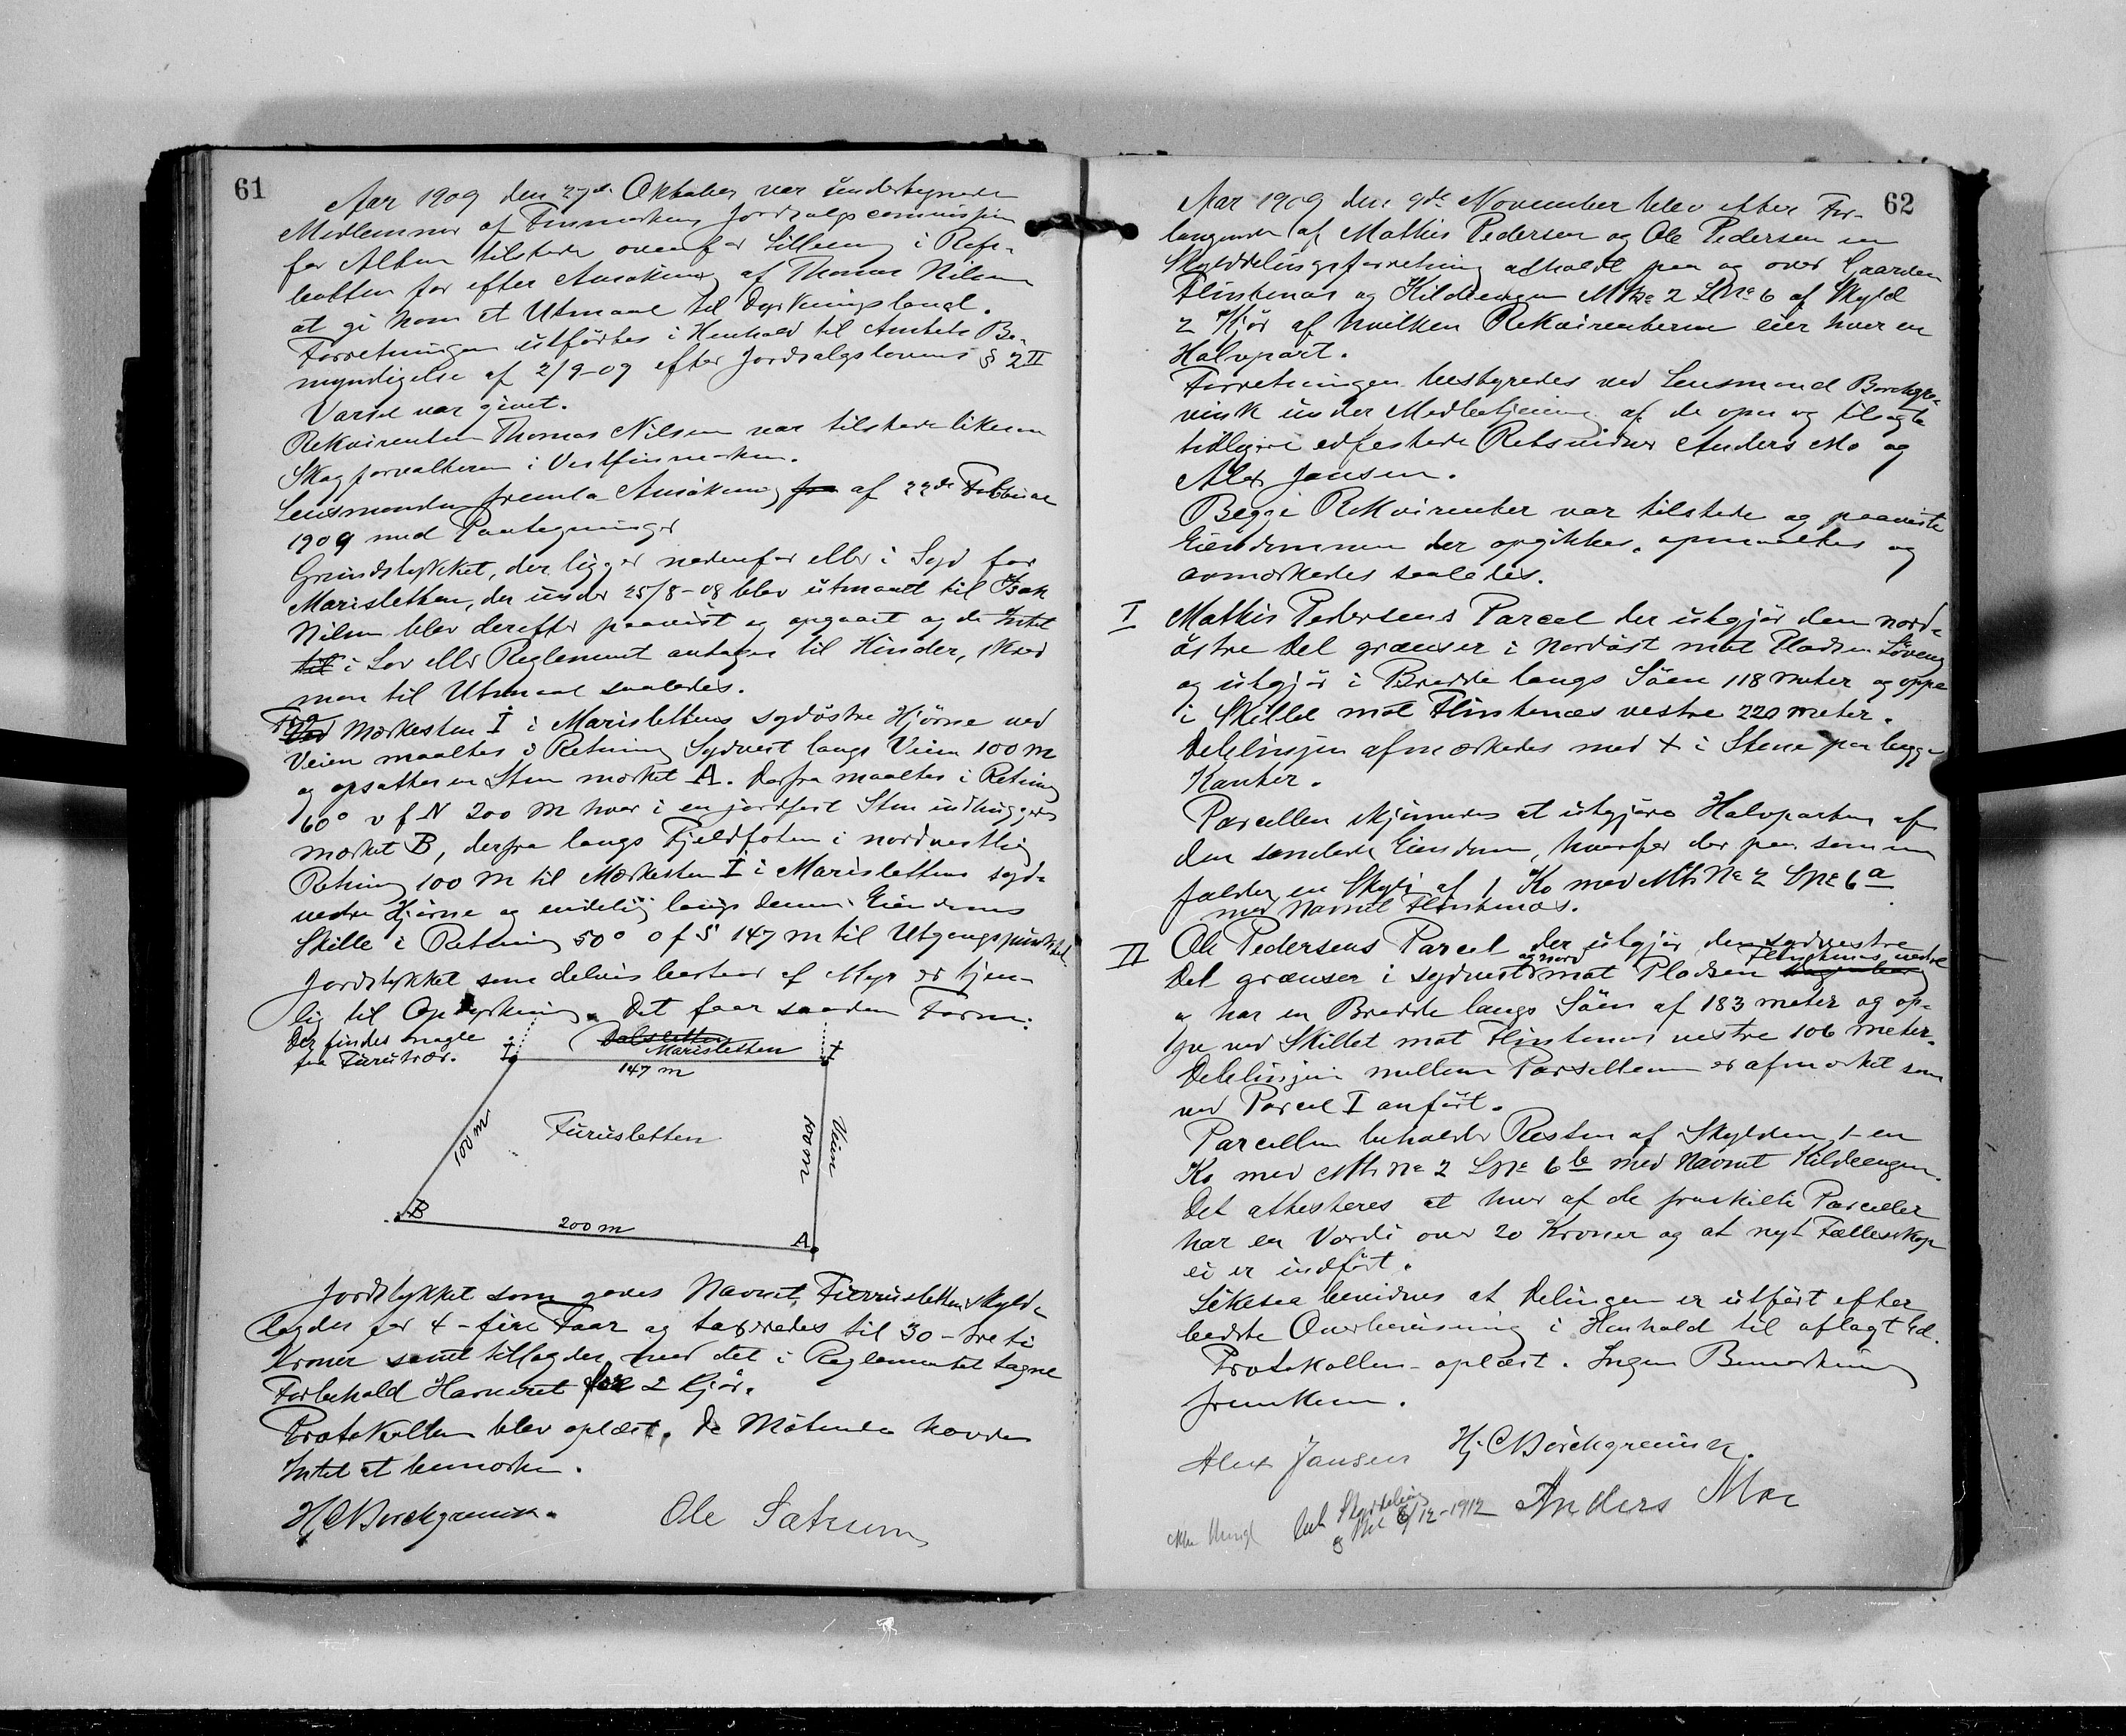 61
Aar 1909 den 27de Oktober var undertegnede
Medlemmer af Finmarkens Jordsalgscommission
for Alten tilstede ovenfor i Rafs-
botten for efter Ansøkning af Thomas Nilsen
at gi ham et Utmaal til Dyrkningsland.
Forretningen utførtes i Henhold til Amtets Be-
myndigelse af 2/9-09 efter Jordsalgslovens § 2 II
Varsel var givet.
Rekvirenten Thomas Nilsen var tilstede likesaa
Skogforvalteren i Vestfinmarken.
Lensmanden fremla Ansøkning fra af 22de Februar
1909 med Paategninger
Grundstykket, der ligger nedenfor eller i Syd for
Marisletten, der under 25/8-08 blev utmaalt til Isak
Nilsen blev derefter paavist og opgaaet og da Intet
til i Lov eller Reglement antages til Hinder, skred
man til Utmaal saaledes.
Fra Ved Mærkesten I i Marislettens sydøstre Hjørne ved
Veien maaltes i Retning Sydvest langs Veien 100 m
og opsattes en Sten mærket A. Derfra maaltes i Retning
60° v f N 200 m hvor i en jordfast Sten indhugges
mærket B, derfra langs Fjeldfoten i nordvestlig
Retning 100 m til Mærkesten I i Marislettens syd-
vestre Hjørne og endelig langs denne Eiendoms
Skille i Retning 50° o f S 147 m til Utgangspunktet.
Jordstykket som delvis bestaar af Myr er tjen-
lig til Opdyrkning. Det faar saadan Form:
Der findes nogle
faa Furutrær.
I
Dalsletten
Marisletten
I
147 m
100 m
Furusletten
100 m
Veien
B
200 m
A
Jordstykket som gaves Navnet Furrusletten skyld-
lagdes for 4 - fire Faar og taxeredes til 30 - treti
Kroner samt tillagdes med det i Reglementet tagne
Forbehold Havneret for 2 Kjør.
Protokollen blev oplæst. De Møtende havde
Intet at bemærke.
H. C. Borchgrevink.
Ole Sætrum
62
Aar 1909 den 9de November blev efter For-
langende af Mathis Pedersen og Ole Pedersen en
Skylddelingsforretning afholdt paa og over Gaarden
Flintenæs og Kildeengen M No 2 L No 6 af Skyld
2 Kjør af hvilken Rekvirenterne eier hver en
Halvpart.
Forretningen bestyredes ved Lensmand Borchgre-
vink under Medbetjening af de opn. og tilsagte
tidligere edfestede Retsvidner Anders Mo og
Alex Jansen.
Begge Rekvirenter var tilstede og paaviste
Eiendommen der opgikkes, opmaaltes og
avmærkedes saaledes.
I Mathis Pedersens Parcel der utgjør den nord-
østre Del grænser i nordøst mot Pladsen Løveng
og utgjør i Bredde langs Søen 118 meter og oppe
i Skillet mot Flintenæs vestre 220 meter.
Delelinjen afmærkedes med + i Stene paa begge
Kanter.
Parcellen skjønnedes at utgjøre Halvparten af
den samlede Eiendom, hvorfor der paa samme
falder en Skyld af 1 Ko med Mts No 2 L No 6 a
med Navnet Flintenæs.
II Ole Pedersens Parcel der utgjør den sydvestre
Del grænser i sydvest og nord mot Pladsen Flintenæs vestre
og har en Bredde langs Søen af 183 meter og op-
pe ved Skillet mot Flintenæs vestre 106 meter.
Delelinjen mellem Parsellerne er afmærket som
ved Parcel I anført.
Parcellen beholder Resten af Skylden 1 - en
Ko med Mts No 2 L No 6 b med Navnet Kildeengen.
Det attesteres at hver af de fraskilte Parceller
har en Værdi over 20 Kroner og at nyt Fællesskap
ei er indført.
Likesaa bevidnes at Delingen er utført efter
bedste Overbevisning i Henhold til aflagt Ed.
Protokollen oplæst. Ingen Bemærkning
fremkom.
Alex Jansen H. C. Borchgrevink.
Anders Moe
Skylddeling
og 6/12-1912